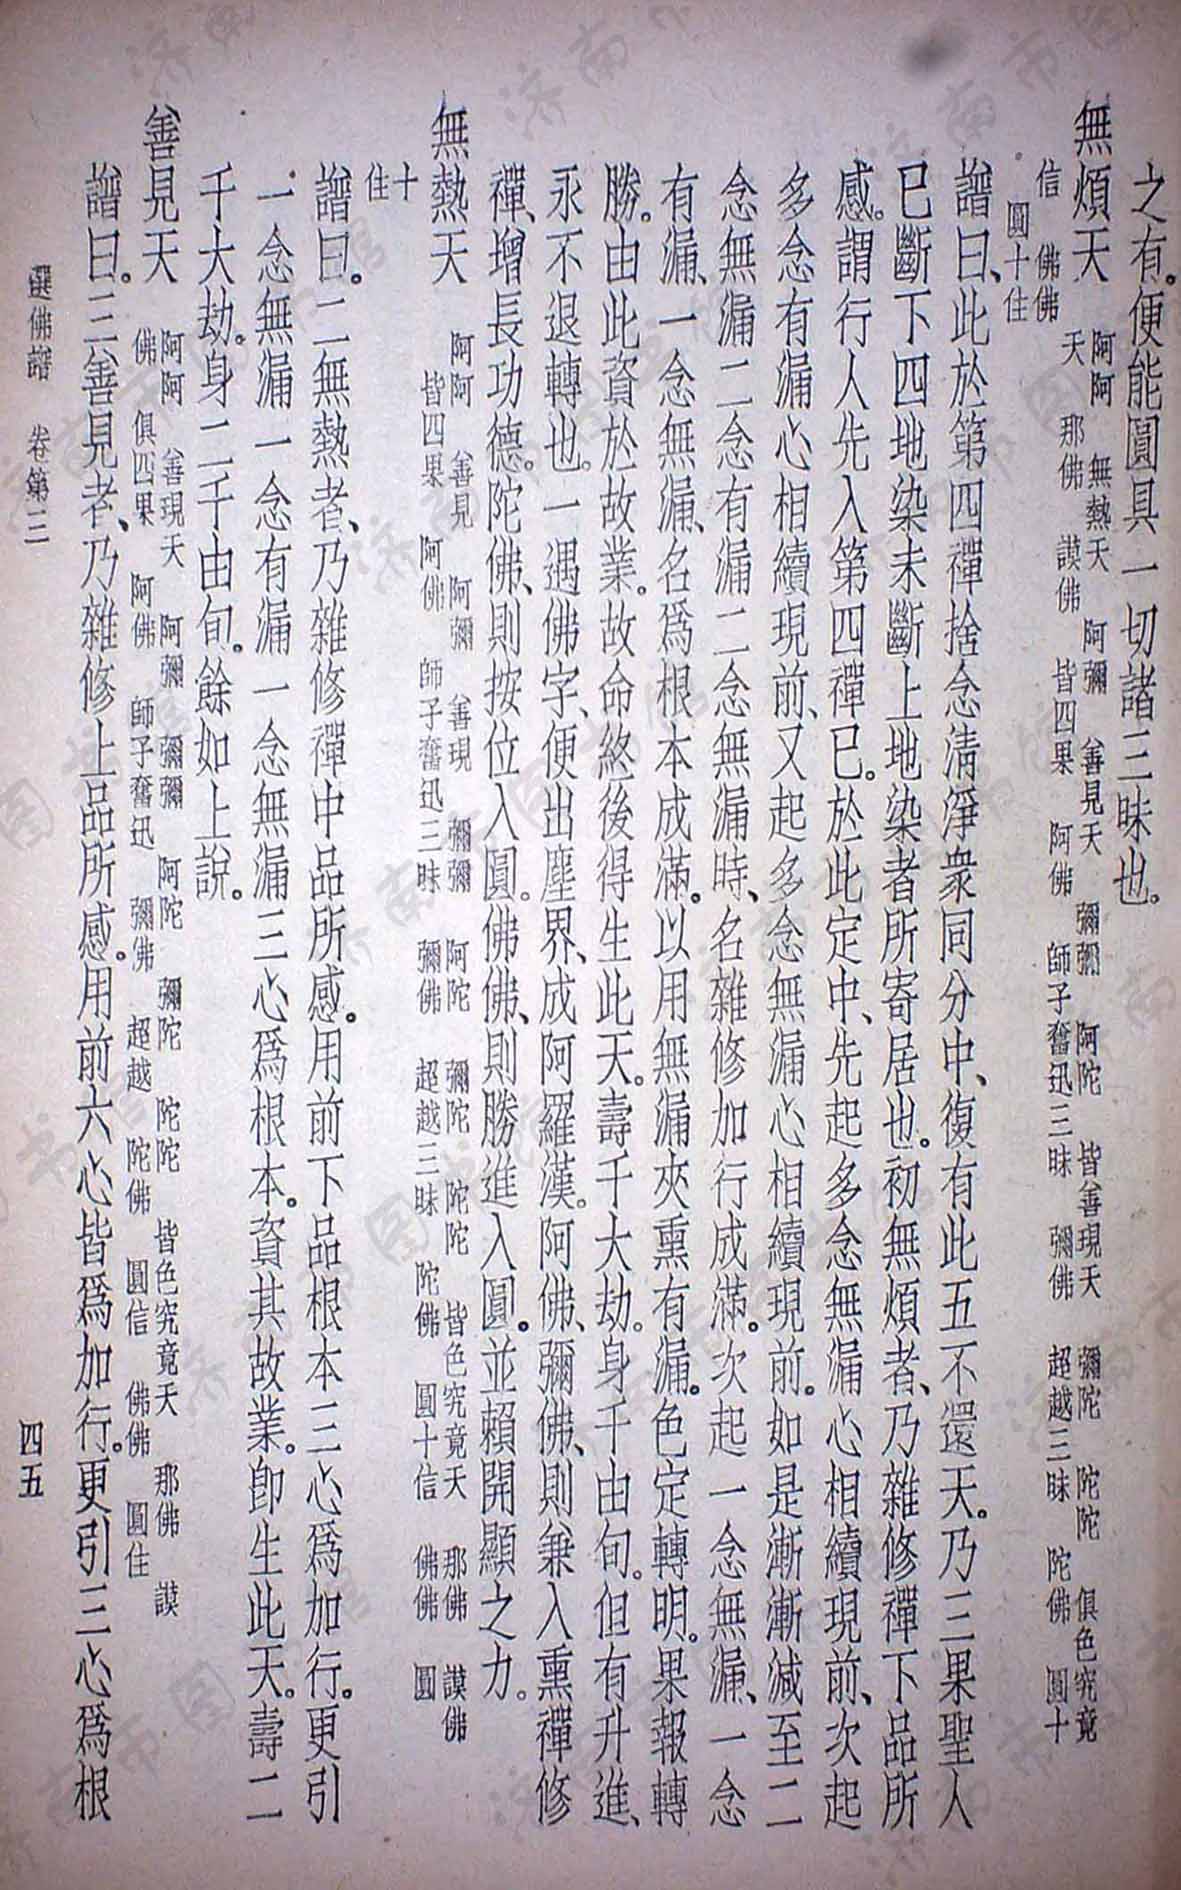 之有。便能圓具一切諸三昧也。
無煩天
阿阿　無熱天　阿彌　善見天　彌彌　阿陀　皆善現天　彌陀　陀陀　俱色究竟
天　那佛　謨佛　皆四果　阿佛　師子奮迅三昧　彌佛　超越三昧　陀佛　圓十
信　佛佛
圓十住
譜曰、此於第四禪捨念淸淨衆同分中、復有此五不還天。乃三果聖人
已斷下四地染未斷上地染者所寄居也。初無煩者、乃雜修禪下品所
感。謂行人先入第四禪已。於此定中、先起多念無漏心相續現前、次起
多念有漏心相續現前、又起多念無漏心相續現前。如是漸漸減至二
念無漏二念有漏二念無漏時、名雜修加行成滿。次起一念無漏、一念
有漏、一念無漏、名爲根本成滿。以用無漏夾熏有漏。色定轉明。果報轉
勝。由此資於故業。故命終後得生此天。壽千大劫。身千由旬。但有升進、
永不退轉也。一遇佛字、便出塵界、成阿羅漢。阿佛、彌佛、則兼入熏禪修
禪、增長功德。陀佛、則按位入圓。佛佛、則勝進入圓。並賴開顯之力。
無熱天
阿阿　善見　阿彌　善現　彌彌　阿陀　彌陀　陀陀　皆色究竟天　那佛　謨佛
皆四果　阿佛　師子奮迅三昧　彌佛　超越三昧　陀佛　圓十信　佛佛　圓
十
住
譜曰。二無熱者、乃雜修禪中品所感。用前下品根本三心爲加行。更引
一念無漏一念有漏一念無漏三心爲根本。資其故業。卽生此天。壽二
千大劫。身二千由旬。餘如上說。
善見天
阿阿　善現天　阿彌　彌彌　阿陀　彌陀　陀陀　皆色究竟天　那佛　謨
佛　俱四果　阿佛　師子奮迅　彌佛　超越　陀佛　圓信　佛佛　圓住
譜曰。三善見者、乃雜修上品所感。用前六心皆爲加行。更引三心爲根
選佛譜　卷第三
四五